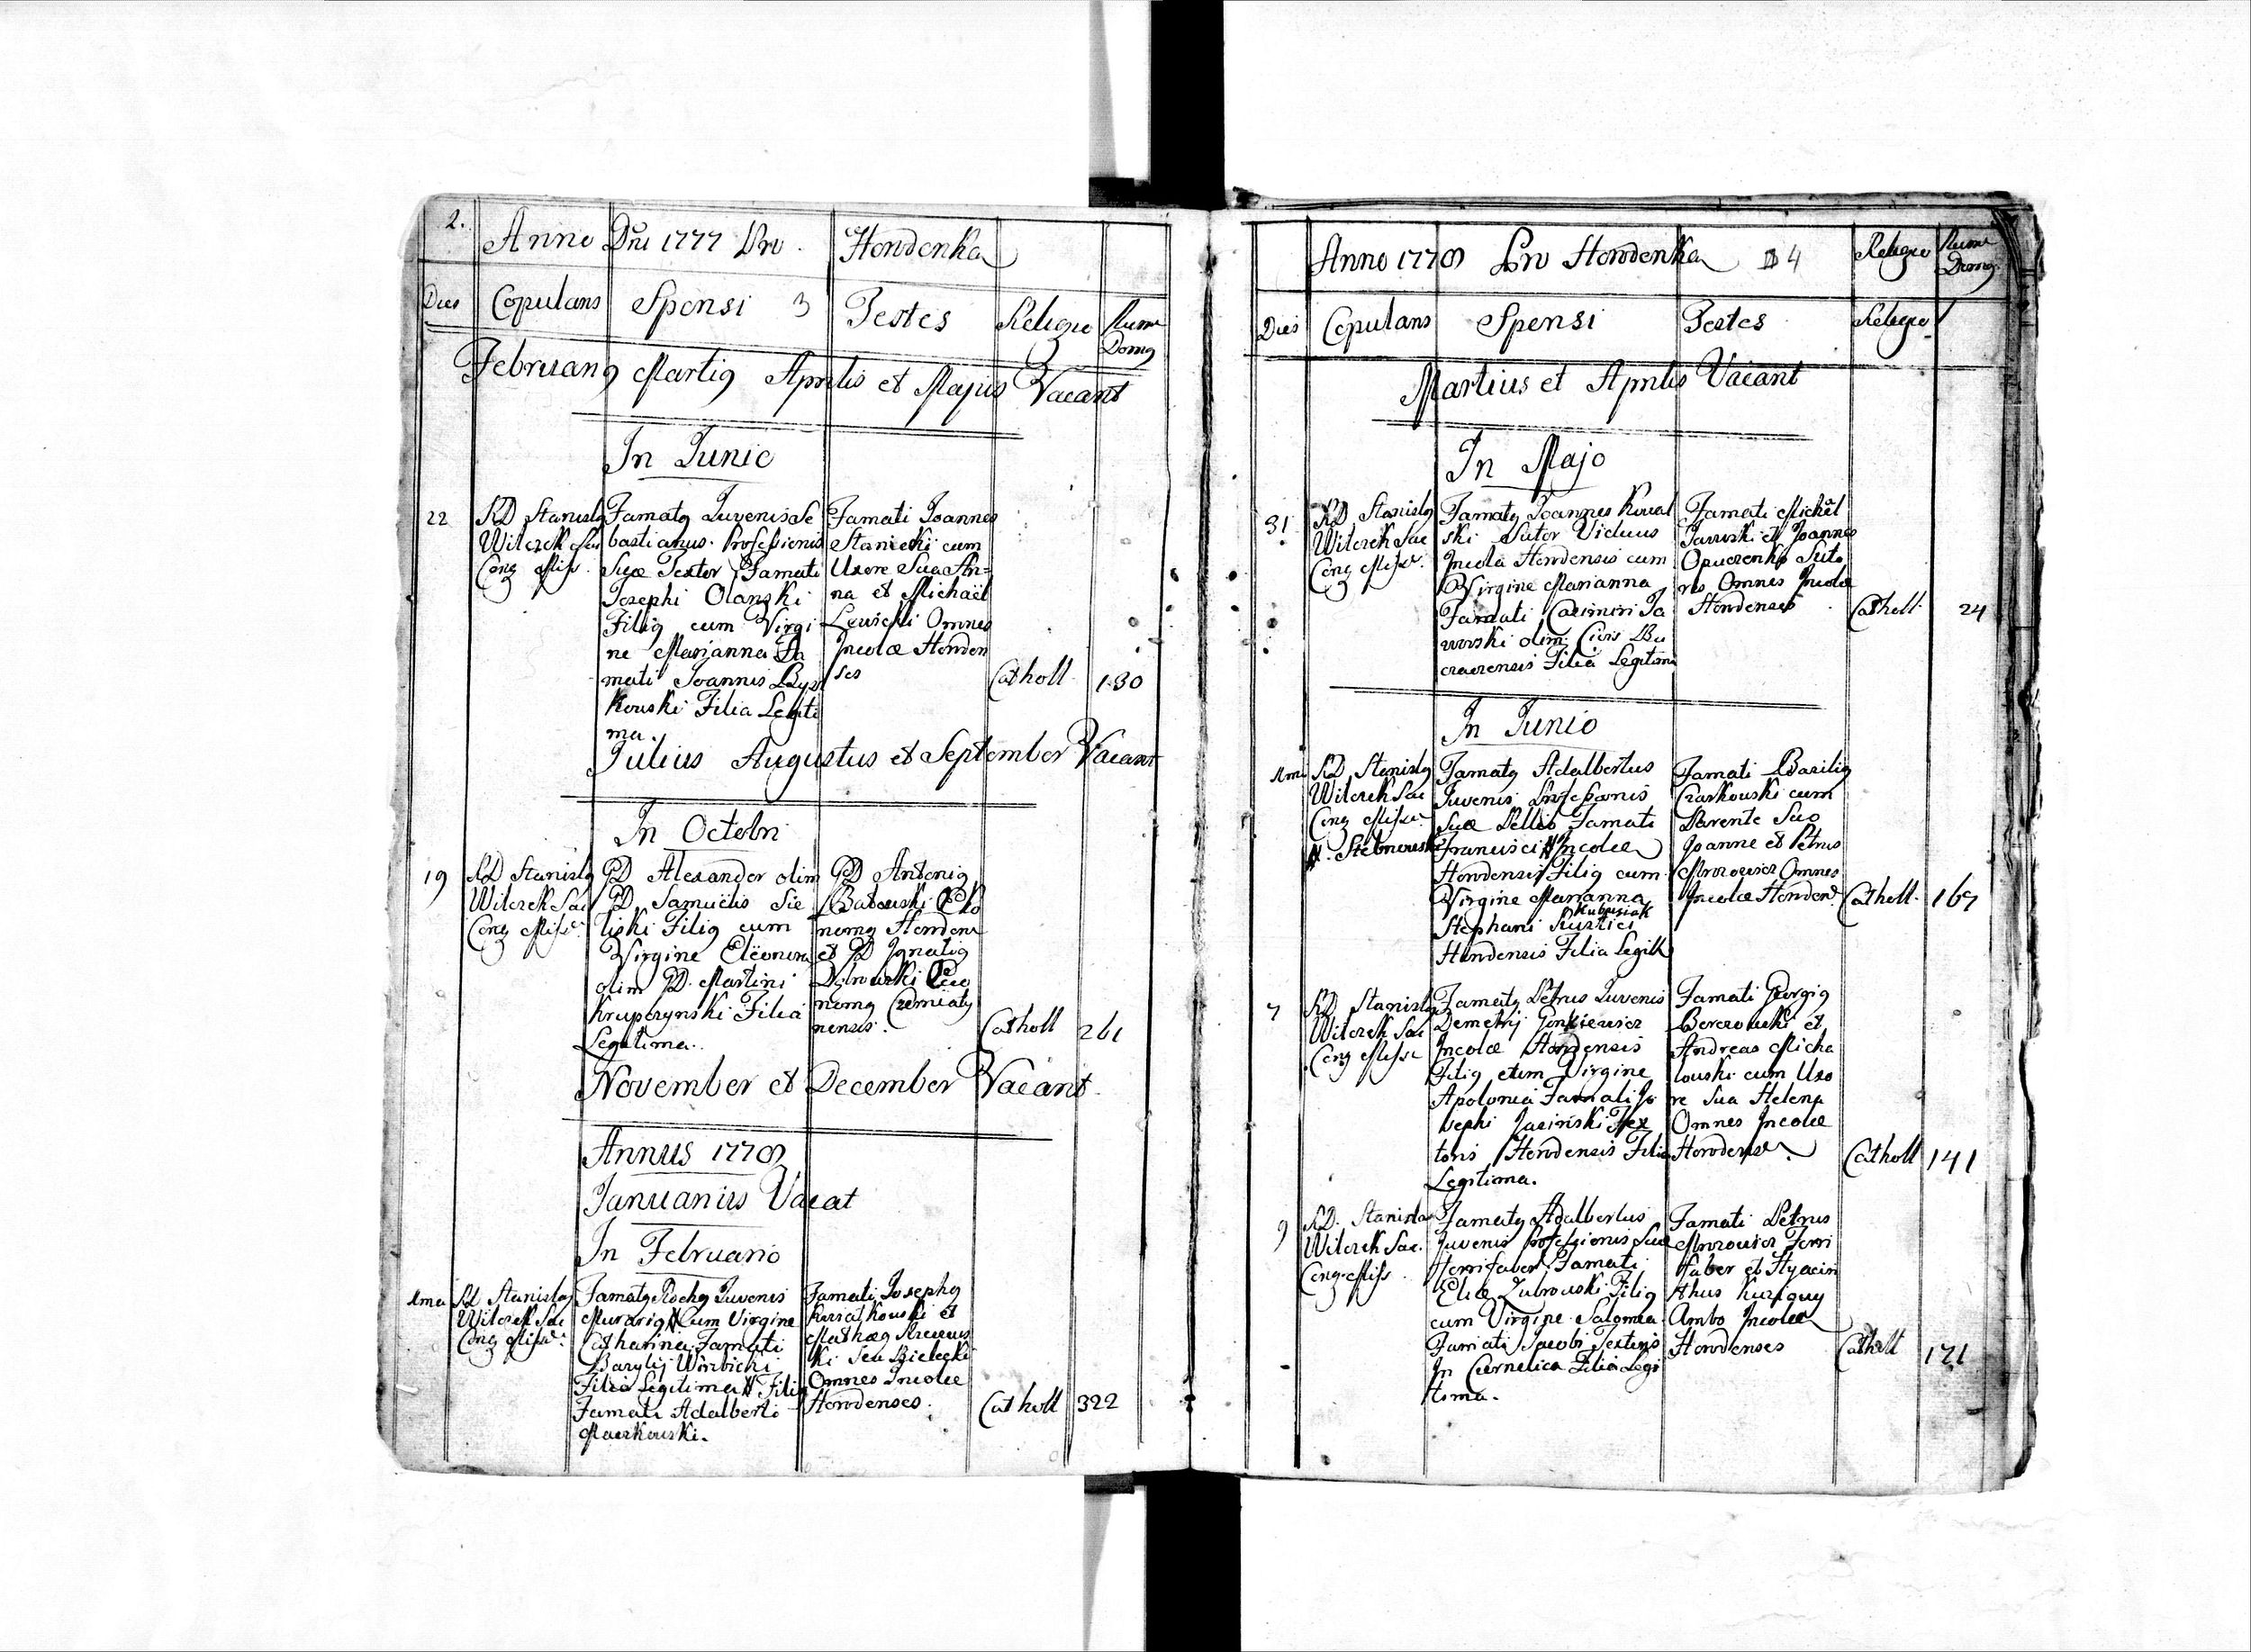 2.
Anno Dni 1777 Pro Horodenka
Dies Copulans Sponsi 3 Testes Religio Num Domg
Februarig Martig Aprilis et Majus Vacant
In Junio
22
RD Stanislg
Wilczek Sac
Cong Miss.
Famatg Juvenis Se
bastianus Professionis
Suæ Textor Famati
Josephi Olanski
Filig cum Virgi
ne Marianna Fa
mati Joannis
kowski Filia Legiti
ma.
Famati Joannes
Staniecki cum
Uxore Sua An=
na et Michaël
Lewicki Omnes
Incolæ Horoden
ses
Catholl
130
Julius Augustus et September Vacant
In Octobri
19
RD Stanislg
Wilczek Sac
Cong Miss.
GD Alexander olim
GD Samuëlis Sie
liski Filig cum
Virgine Eleonora
olim GD Martini
Krupczynski Filia
Legitima.
GD Antonig
Batowski Œko
nomg Horoden
et GD Ignatig
nomg
nensis.
Catholl
261
November et December Vacant
Annus 1778
Januarius Vacat
In Februario
1ma
RD Stanislg
Wilczek Sac
Cong Miss.
Famatg Rochg Juvenis
Murarig # Cum Virgine
Catharina Famati
Bazylij Wirbicki
Filia Legitima # Filig
Famati Adalberti
Maczkowski.
Famati Josephg
Kwiatkowski et
Mathæg
ki Seu Bielecki
Omnes Incolæ
Horodenses.
Catholl
322
Anno 1778 Pro Horodenka 4 Religio Num Domg
Dies Copulans Sponsi Testes Religio
Martius et Aprilis Vacant
In Majo
31
RD Stanislg
Wilczek Sac
Cong Miss.
Famatg Joannes Kowal
ski Sutor Viduus
Incola Horodensis cum
Virgine Marianna
Famati Casimiri Ja
worski olim Civis Bu
czacensis Filia Legitima
Famati Michael
Jaworski et Joannes
Opuczenko Suto
res Omnes Incolæ
Horodenses
Catholl
24
In Junio
1ma
RD Stanislg
Wilczek Sac
Cong Miss.
Famatg Adalbertus
Juvenis Professionis
Suæ Pellio Famati
Francisci # Incolæ
Horodensis Filig cum
Virgine Marianna
Kubasiak
Stephani Rustici
Horodensis Filia Legitt
Famati Basilig
Czarkowski cum
Parente Suo
Joanne et Petrus
Mrozowicz Omnes
Incolæ Horoden
Catholl.
169
7
RD Stanislg
Wilczek Sac
Cong Miss
Famatg Petrus Juvenis
Demetrij Gonkiewicz
Incolæ Horodensis
Filig cum Virgine
Apolonia Famati Jo
sephi Jasinski Tex
toris Horodensis Filia
Legitima.
Famati Georgig
Berezowski et
Andreas Micha
lowski cum Uxo
re Sua Helena
Omnes Incolæ
Horodenses
Catholl
141
9
RD. Stanislaus
Wilczek Sac.
Cong Miss
Famatg Adalbertus
Juvenis Professionis Suæ
Ferrifaber Famati
Eliæ Zubrowski Filig
cum Virgine Salomea
Famati Jacobi Textoris
In Czernelica Filia Legi
tima.
Famati Petrus
Mrozowicz Ferri
faber et Hyacin
thus
Ambo Incolæ
Horodenses
Catholl
171